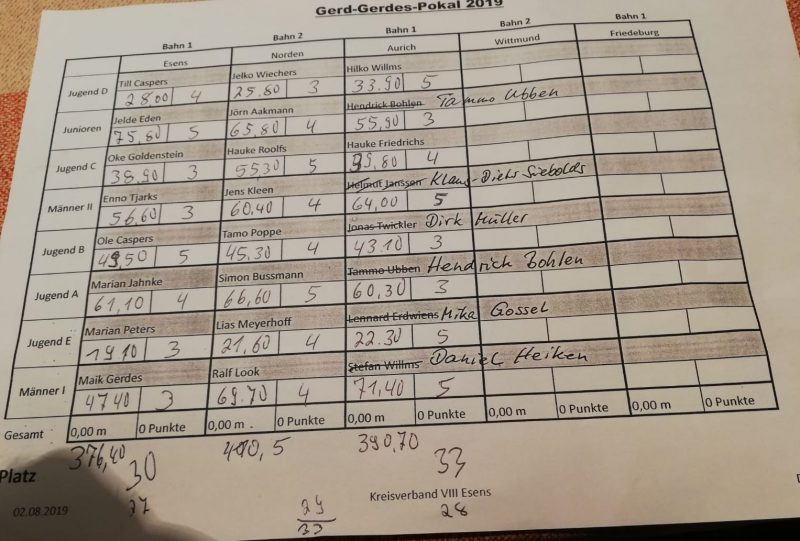 Gerd-Gerdes-Pokal 2019
Bahn 1 Bahn 2 Bahn 1 Bahn 2 Bahn 1
Esens Norden Aurich Wittmund Friedeburg
Jugend D Till Caspers Jelko Wiechers Hilko Willms
28.00 4 25.80 3 33.90 5
Junioren Jelde Eden Jörn Aakmann Hendrick Bohlen Tammo Ubben
75,80 5 65.80 4 55,90 3
Jugend C Oke Goldenstein Hauke Roolfs Hauke Friedrichs
38.90 3 55,30 5 39,80 4
Männer II Enno Tjarks Jens Kleen Helmut Janssen Klaus-Dieter Siebolds
56.60 3 60.40 4 64,00 5
Jugend B Ole Caspers Tamo Poppe Jonas Twickler Dirk Müller
49,50 5 45.30 4 43.10 3
Jugend A Marian Jahnke Simon Bussmann Tammo Ubben Hendrich Bohlen
61,10 4 66,60 5 60,30 3
Jugend E Marian Peters Lias Meyerhoff Lennard Erdwiens Mika Gossel
19.10 3 21,60 4 22.30 5
Männer I Maik Gerdes Ralf Look Stefan Willms Daniel Heiken
47.40 3 69.70 4 71,40 5
Gesamt 0,00 m 0 Punkte 0,00 m 0 Punkte 0,00 m 0 Punkte 0,00 m 0 Punkte 0,00 m 0 Punkte
376,40 390,70
30 33
Platz
Kreisverband VIII Esens
02.08.2019 27 28
29
33